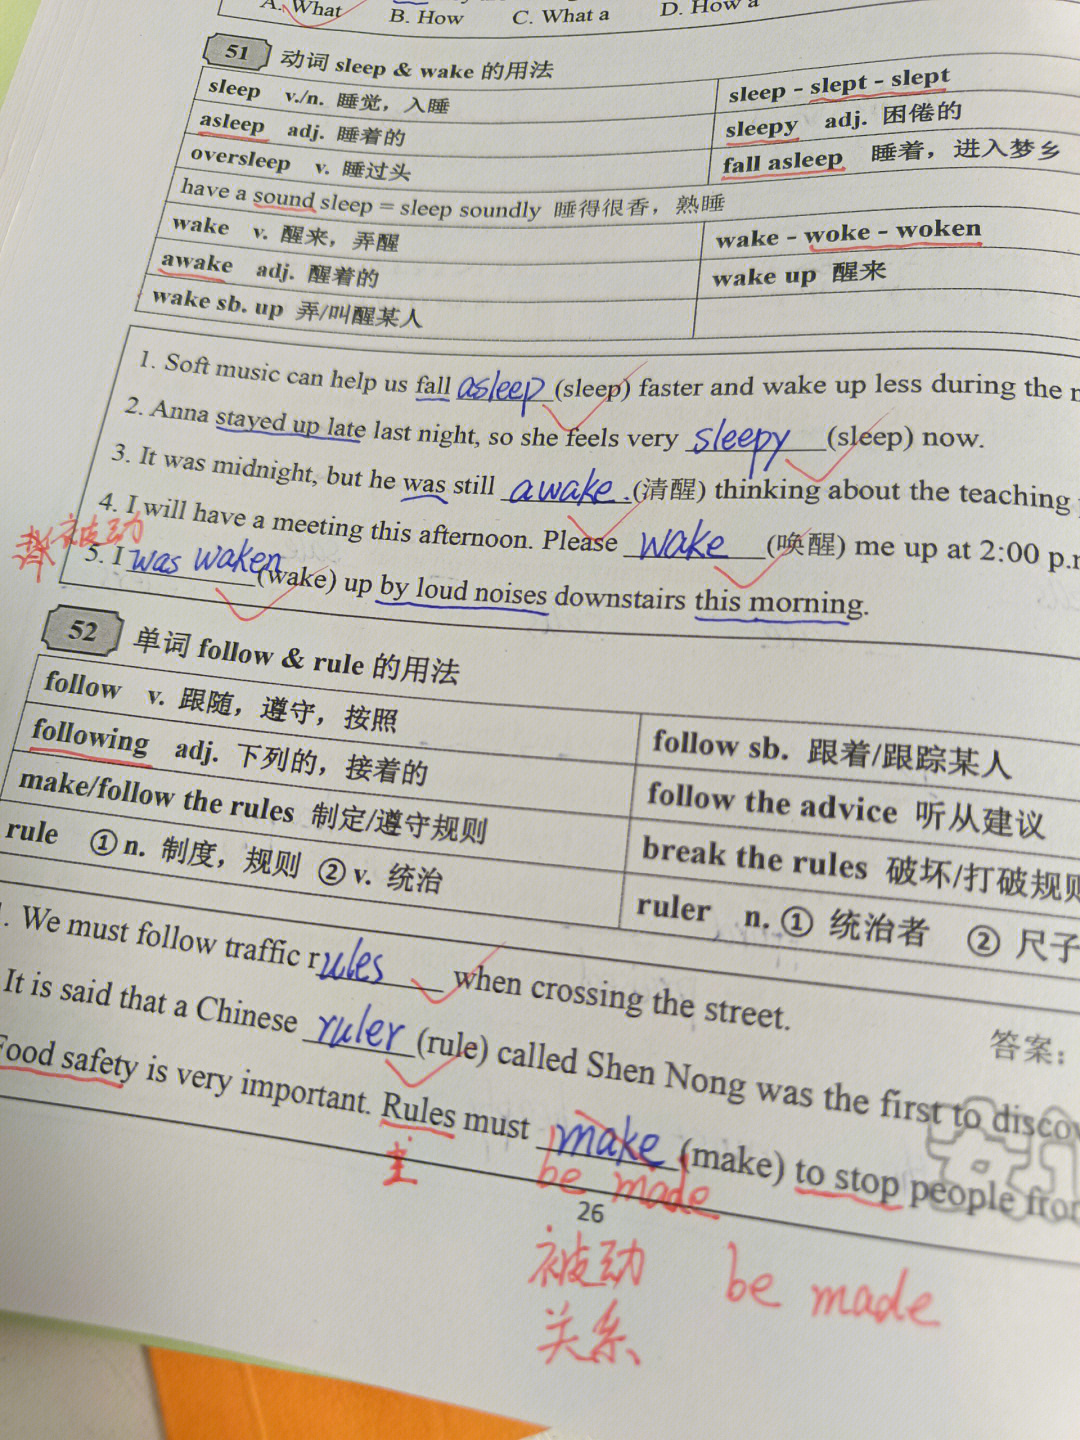 A. What B. How C. What a D. How a
51 动词 sleep & wake 的用法
sleep v./n. 睡觉，入睡 sleep - slept - slept
asleep adj. 睡着的 sleepy adj. 困倦的
oversleep v. 睡过头 fall asleep 睡着，进入梦乡
have a sound sleep = sleep soundly 睡得很香，熟睡
wake v. 醒来，弄醒 wake - woke - woken
awake adj. 醒着的 wake up 醒来
wake sb. up 弄/叫醒某人
1. Soft music can help us fall asleep (sleep) faster and wake up less during the
2. Anna stayed up late last night, so she feels very sleepy (sleep) now.
3. It was midnight, but he was still awake.(清醒) thinking about the teaching
4. I will have a meeting this afternoon. Please wake (唤醒) me up at 2:00 p.m
被动
5. I was waken (wake) up by loud noises downstairs this morning.
52 单词 follow & rule 的用法
follow v. 跟随，遵守，按照 follow sb. 跟着/跟踪某人
following adj. 下列的，接着的 follow the advice 听从建议
make/follow the rules 制定/遵守规则 break the rules 破坏/打破规则
rule ① n. 制度，规则 ② v. 统治 ruler n. ① 统治者 ② 尺子
. We must follow traffic rules when crossing the street.
答案：
It is said that a Chinese ruler (rule) called Shen Nong was the first to disco
Food safety is very important. Rules must make (make) to stop people from
主 be made
26
被动 be made
关系